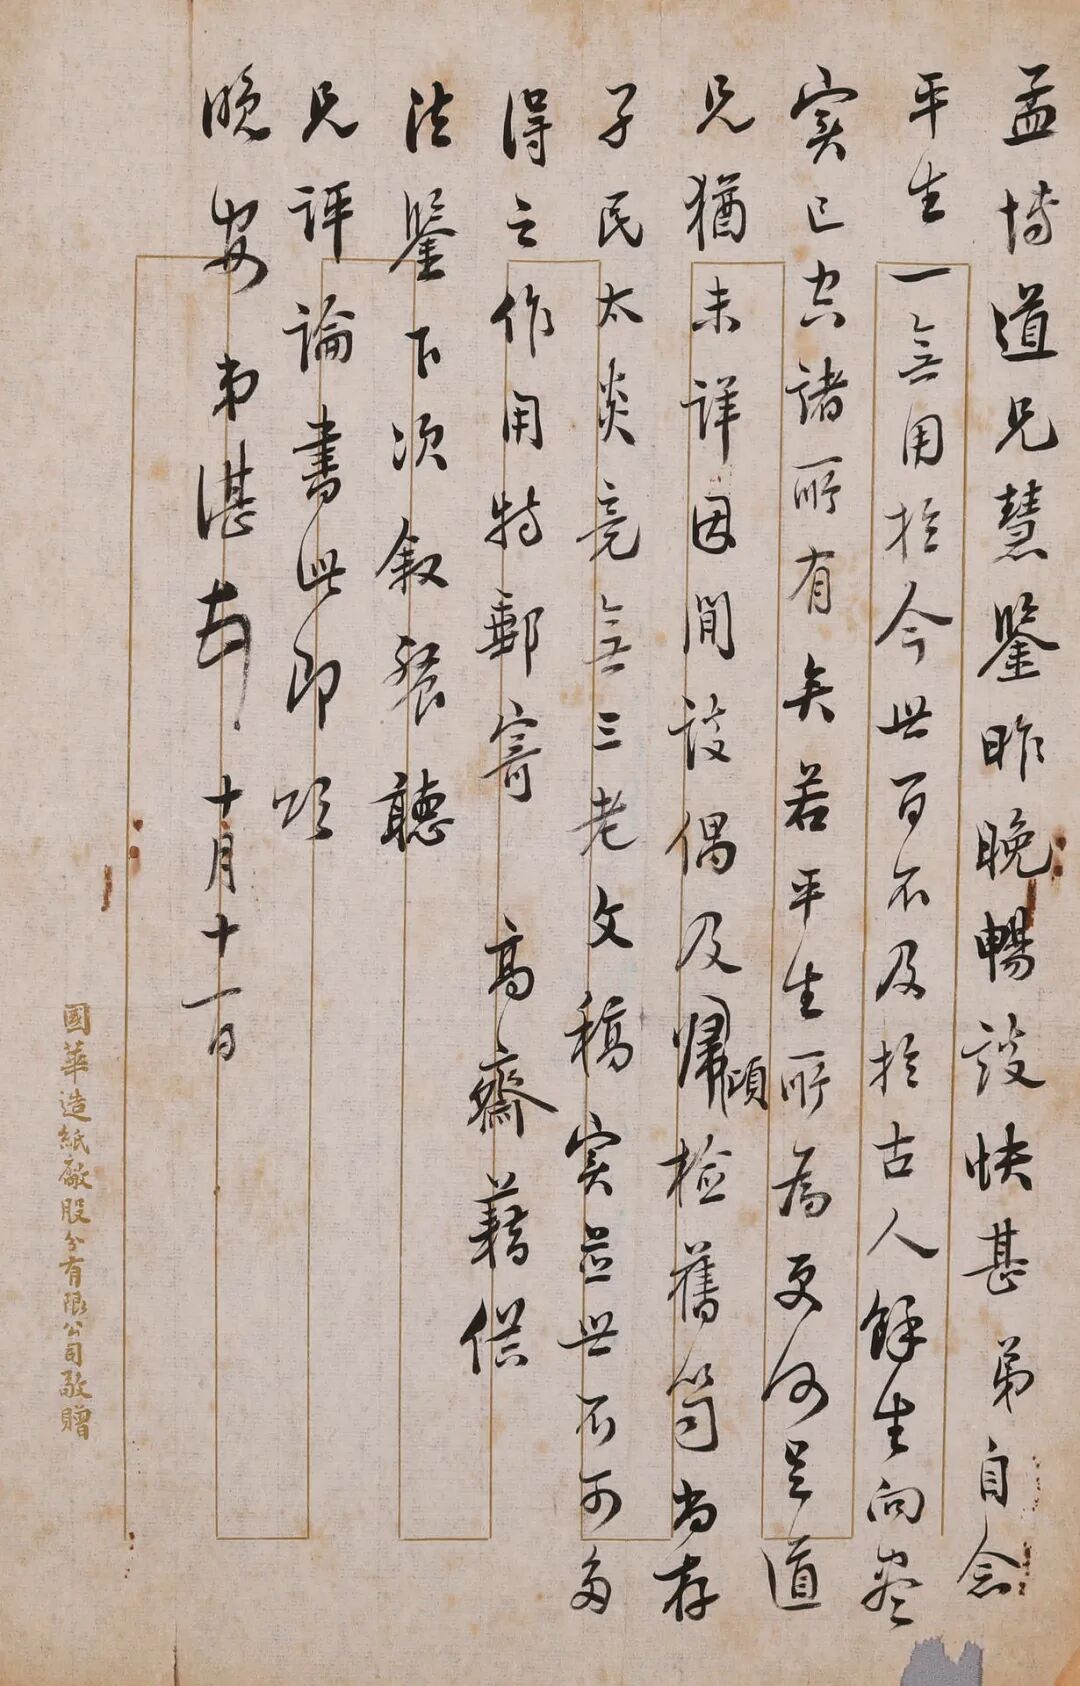 孟博道兄慧鑒昨晚暢談快甚弟自念
平生一無用於今世百不及於古人餘生向盡
實已空諸所有矣若平生所為更何足道
兄猶未詳因閒談偶及歸頃檢舊笥尚存
子民太炎竟無三老文稿實並世不可多
得之作用特郵寄 高齋藉供
法鑒下次敘餐聽
兄評論書此即頌
晚安弟湛 十月十一日
國華造紙廠股分有限公司敬贈